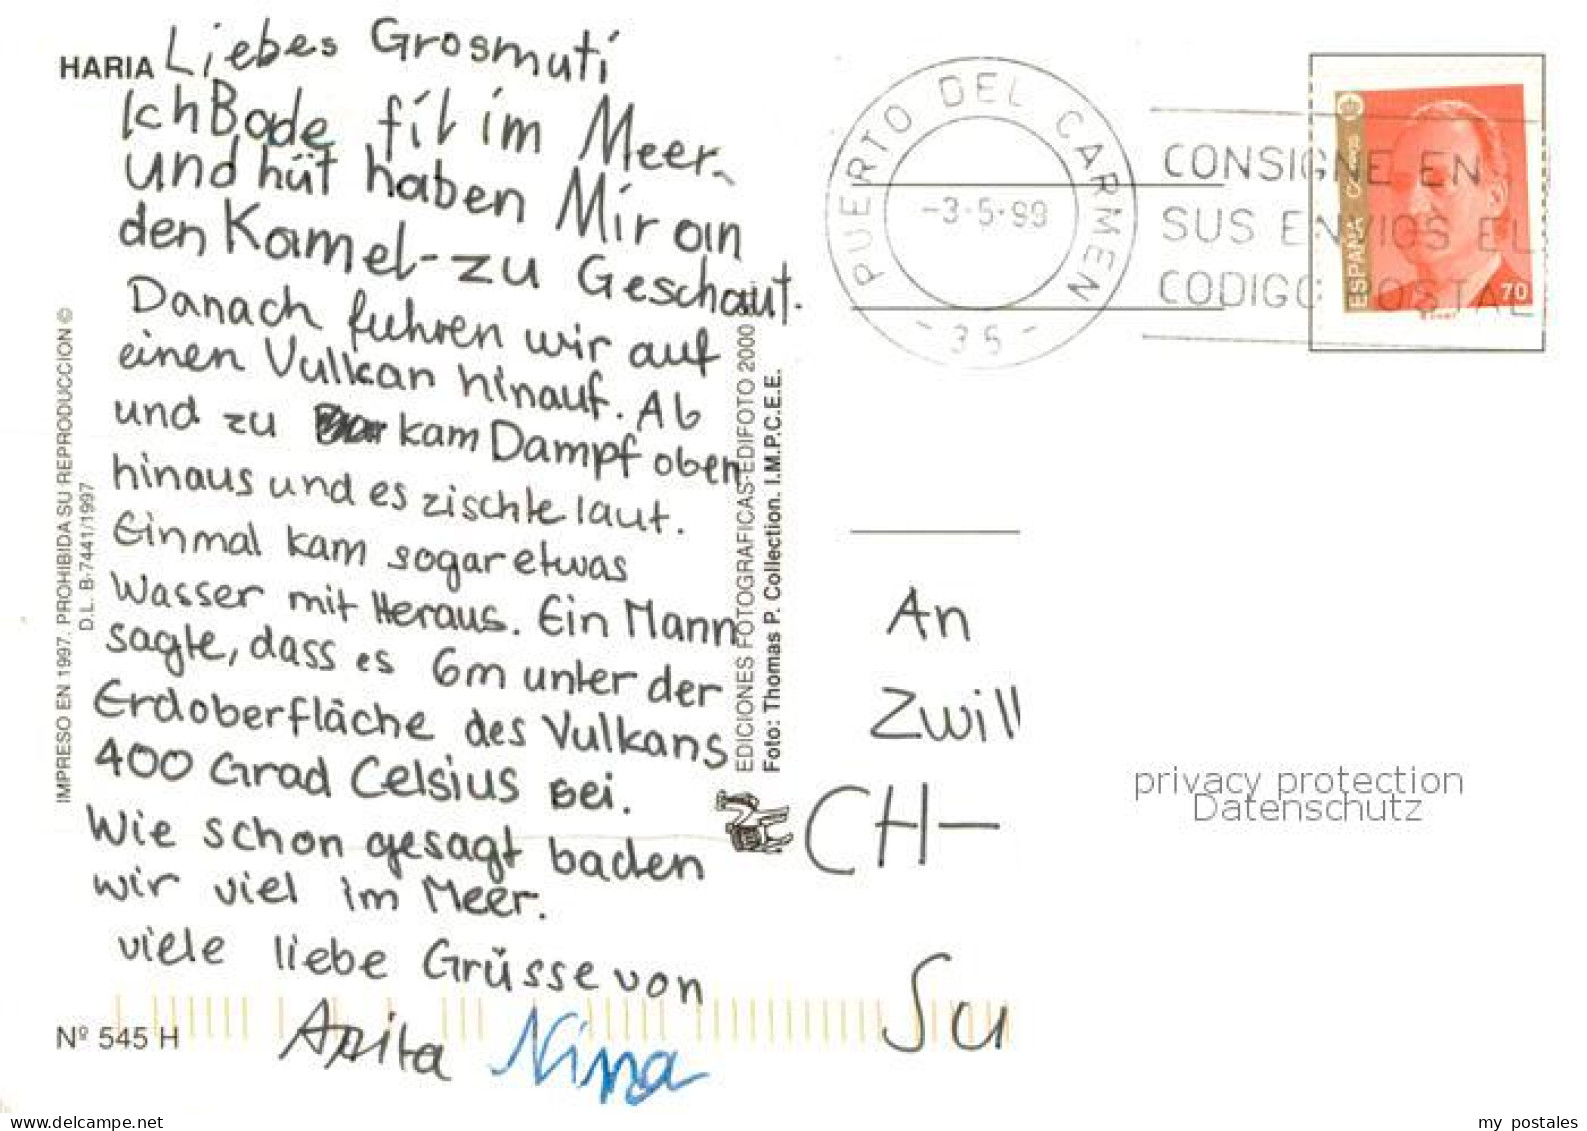 HARIA
Liebes Grosmuti
Ich Bade fil im Meer.
und hüt haben Mir an
den Kamel-zu Geschaut.
Danach fuhren wir auf
einen Vulkan hinauf. Ab
und zu kam Dampf oben
hinaus und es zischte laut.
Einmal kam sogar etwas
Wasser mit Heraus. Ein Mann
sagte, dass es 6m unter der
Erdoberfläche des Vulkans
400 Grad Celsius sei.
Wie schon gesagt baden
wir viel im Meer.
viele liebe Grüsse von
Anita Nina
Nº 545 H
IMPRESO EN 1997. PROHIBIDA SU REPRODUCCION ©
D.L. B-7441/1997
EDICIONES FOTOGRAFICAS-EDIFOTO 2000
Foto: Thomas P. Collection. I.M.P.C.E.E.
PUERTO DEL CARMEN
-3-5-99
-35-
CONSIGNE EN
SUS ENVIOS EL
CODIGO POSTAL
ESPAÑA
70
An
Zwill
CH-
Su
privacy protection
Datenschutz
delcampe.net
my_postales